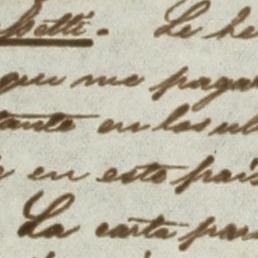 petti. Le he
que me pagar
tante en los ul
en este país
La carta para